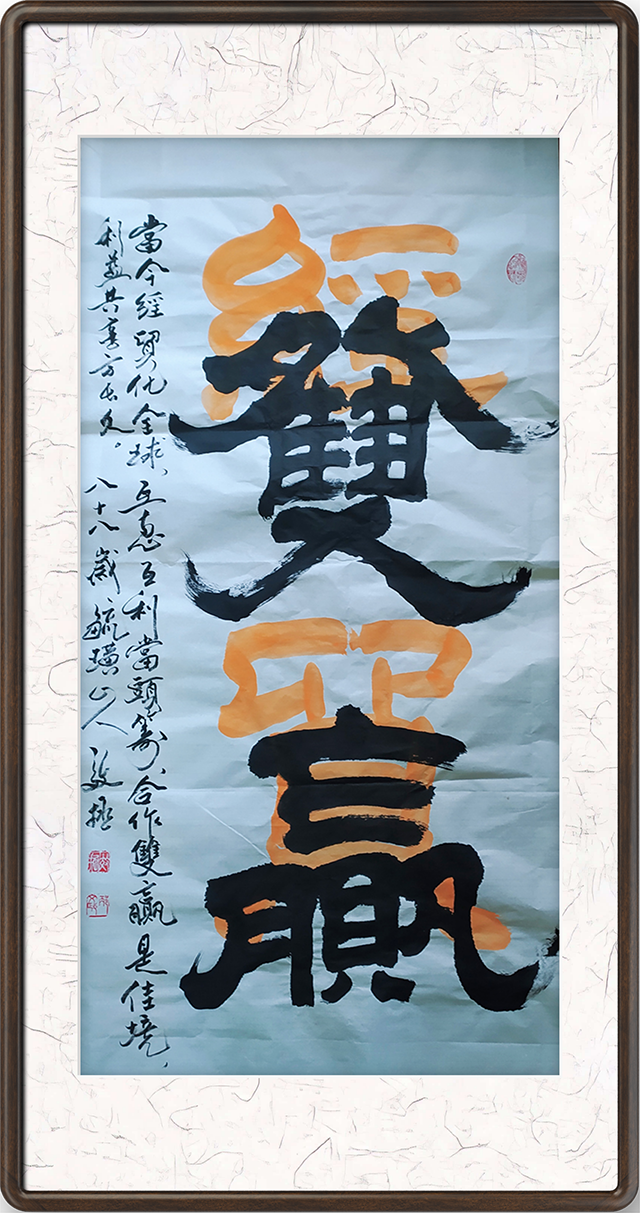 經貿
雙贏
當今經貿化全球、互惠互利當頭籌、合作雙贏是佳境、
利益共享方長久。
八十八歲毓璜山人